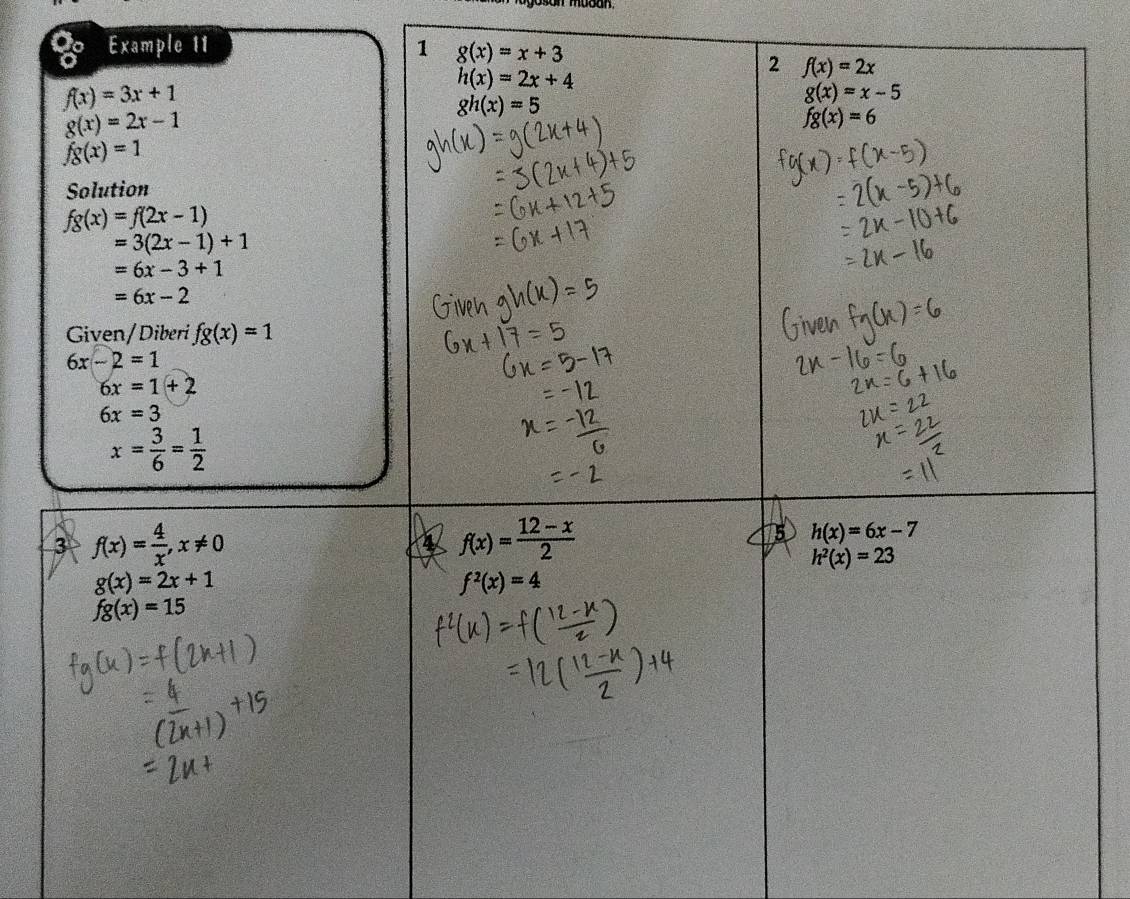 Example 11
f(x) = 3x + 1
g(x) = 2x − 1
fg(x) = 1
Solution
fg(x) = f(2x − 1)
= 3(2x − 1) + 1
= 6x − 3 + 1
= 6x − 2
Given/Diberi fg(x) = 1
6x − 2 = 1
6x = 1 + 2
6x = 3
x = 3/6 = 1/2
1 g(x) = x + 3
h(x) = 2x + 4
gh(x) = 5
gh(x) = g(2x+4)
= 3(2x+4)+5
= 6x+12+5
= 6x+17
Given gh(x) = 5
6x+17 = 5
6x = 5-17
= -12
x = -12/6
= -2
2 f(x) = 2x
g(x) = x − 5
fg(x) = 6
fg(x) = f(x-5)
= 2(x-5)+6
= 2x-10+6
= 2x-16
Given fg(x) = 6
2x-16 = 6
2x = 6+16
2x = 22
x = 22/2
= 11
3 f(x) = 4/x, x ≠ 0
g(x) = 2x + 1
fg(x) = 15
fg(x) = f(2x+1)
= 4/(2x+1) +15
= 2x+
4 f(x) = (12 − x)/2
f²(x) = 4
f²(x) = f((12-x)/2)
= 12((12-x)/2)+4
5 h(x) = 6x − 7
h²(x) = 23